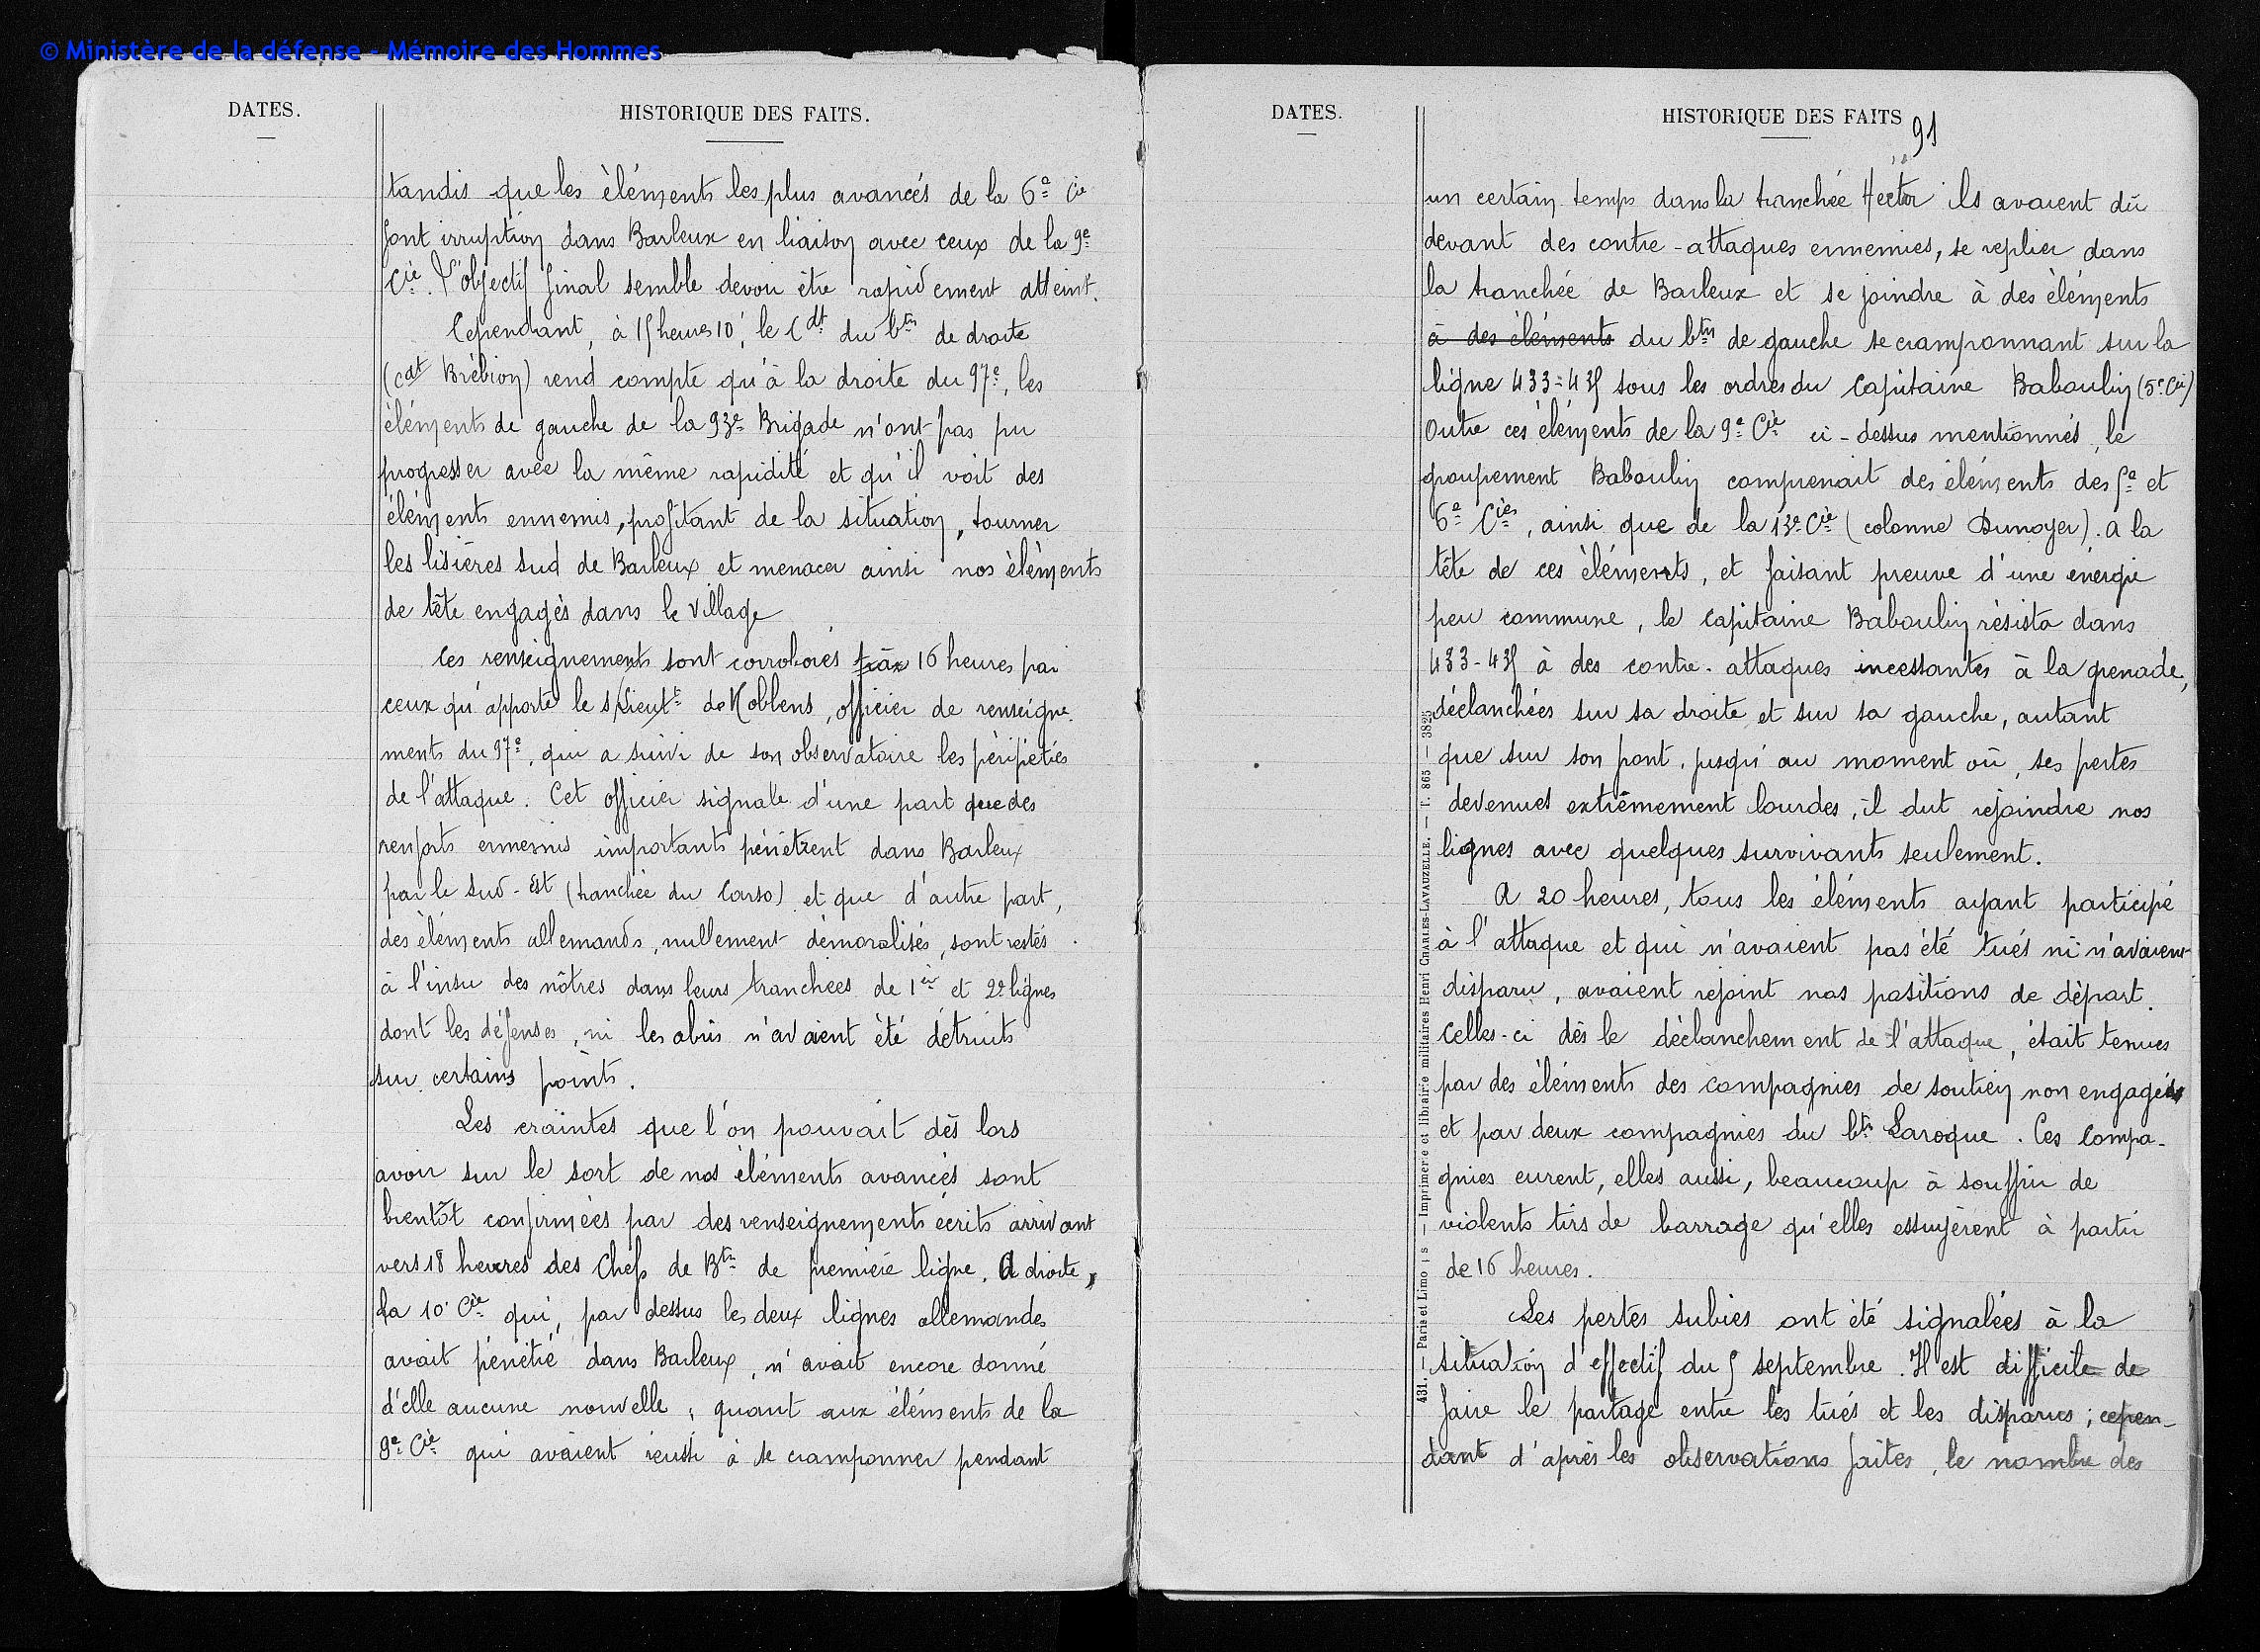 © Ministère de la défense - Mémoire des Hommes
DATES.
HISTORIQUE DES FAITS.
tandis que les èléments les plus avancés de la 6e Cie
font irruption dans Barleux en liaison avec ceux de la 9e
Cie. L'objectif final semble devoir être rapidement atteint.
Cependant, à 15 heures 10', le Cdt du btn de droite
(Cdt Brébion) rend compte qu'à la droite du 97e, les
éléments de gauche de la 93e Brigade n'ont pas pu
progresser avec la même rapidité et qu'il voit des
éléments ennemis, profitant de la situation, tourner
les lisières Sud de Barleux et menacer ainsi nos èléments
de tête engagés dans le village
Ces renseignements sont corroborés à 16 heures par
ceux qu'apporte le s/Lieutt de Koblens, officier de renseigne-
ments du 97e, qui a suivi de son observatoire les péripéties
de l'attaque. Cet officier signale d'une part que des
renforts ennemis importants pénètrent dans Barleux
par le Sud-Est (tranchée du Carso) et que d'autre part,
des èléments allemands, nullement démoralisés, sont restés
à l'insu des nôtres dans leurs tranchées de 1ère et 2e lignes
dont les défenses, ni les abris n'avaient été détruits
sur certains points.
Les craintes que l'on pouvait dès lors
avoir sur le sort de nos èléments avancés sont
bientôt confirmées par des renseignements écrits arrivant
vers 18 heures des Chefs de Btn de première ligne. A droite,
La 10e Cie qui, par dessus les deux lignes allemandes
avait pénétré dans Barleux, n'avait encore donné
d'elle aucune nouvelle; quant aux éléments de la
9e Cie qui avaient réussi à se cramponner pendant
DATES.
HISTORIQUE DES FAITS
91
un certain temps dans la tranchée Hector ils avaient dû
devant des contre-attaques ennemies, se replier dans
la tranchée de Barleux et se joindre à des èléments
à des èléments du btn de gauche se cramponnant sur la
ligne 433-435 sous les ordres du Capitaine Baboulin (5e Cie)
Outre ces èléments de la 9e Cie ci-dessus mentionnés, le
groupement Baboulin comprenait des éléments des 5e et
6e Cies, ainsi que de la 13e Cie (colonne Dunoyer). A la
tête de ces èléments, et faisant preuve d'une énergie
peu commune, le capitaine Baboulin résista dans
433-435 à des contre-attaques incessantes à la grenade,
déclanchées sur sa droite et sur sa gauche, autant
que sur son front, jusqu'au moment où, ses pertes
devenues extrêmement lourdes, il dut rejoindre nos
lignes avec quelques survivants seulement.
A 20 heures, tous les éléments ayant participé
à l'attaque et qui n'avaient pas été tués ni n'avaient
disparu, avaient rejoint nos positions de départ.
Celles-ci dès le déclanchement de l'attaque, était tenues
par des éléments des compagnies de soutien non engagées
et par deux compagnies du btn Laroque. Ces Compa-
gnies eurent, elles aussi, beaucoup à souffrir de
violents tirs de barrage qu'elles essuyèrent à partir
de 16 heures.
Les pertes subies ont été signalées à la
situation d'effectif du 5 septembre. Il est difficile de
faire le partage entre les tués et les disparus; cepen-
dant d'après les observations faites, le nombre des
431. — Paris et Limo s — Imprimerie et librairie militaires Henri CHARLES-LAVAUZELLE. — T. 865 — 3825